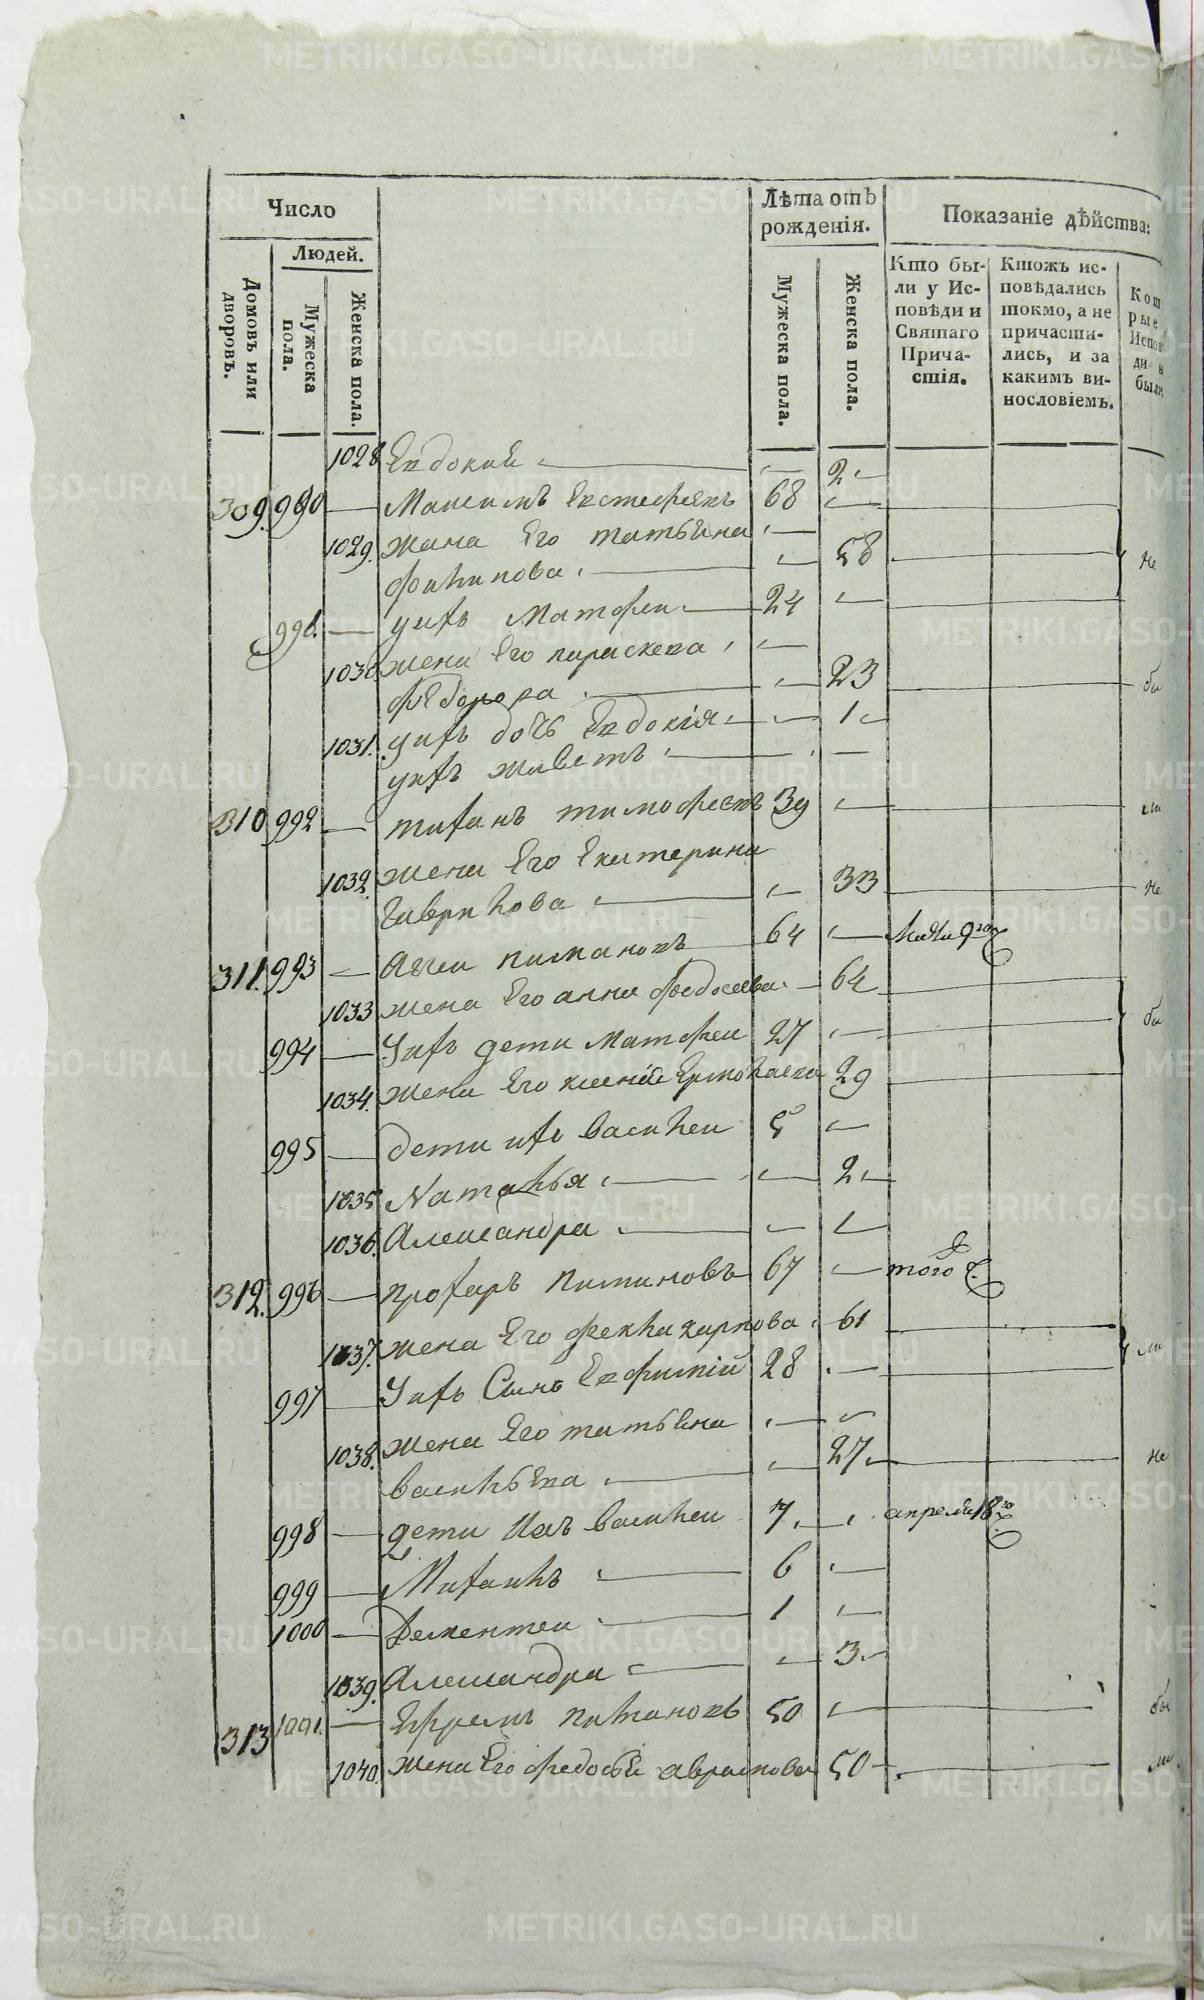 Число
Людей.
Домовъ или дворовъ.
Мужеска пола.
Женска пола.
Лѣта отъ рожденія.
Мужеска пола.
Женска пола.
Показаніе дѣйства:
Кто бы-
ли у Ис-
повѣди и
Святаго
Прича-
стія.
Ктожъ ис-
повѣдались
токмо, а не
причасти-
лись, и за
какимъ ви-
нословіемъ.
Кот
рые
Испов
ди н
были
1028 Евдокий 2
309. 990 Максимъ Евстефеевъ 68
1029. жена Его татьяна
филипова 58 не
991. ихъ Матфеи 24
1030 жена Его параскева
фЕдорова 23 бы
1031. ихъ дочь Евдокія 1
ихъ живетъ
310 992 тиханъ тимофеевъ 39 ли
1032. жена Его Екатерина
Гаврилова 33 не
311. 993 Агеи пимановъ 64
1033 жена Его анна федосеева 64
994 Ихъ дети Матфеи 27 бы
1034. жена Его ксенія Ермолаева 29
995 дети ихъ василеи 5
1035 Наталья 2
1036. Александра 1
312. 996 прохаръ пимановъ 67 того
1037. жена Его фекла карпова 61
997 Ихъ Сынъ Евфимий 28 ли
1038. жена Его татьяна
васильева 27 не
998 дети Ихъ василеи 7 апреля 18
999 Михаилъ 6
1000 Дементеи 1
1039. Александра 3
313 1001. Ефремъ пимановъ 50 бы
1040. жена Его федосья аврамова 50 ли
METRIKI.GASO-URAL.RU